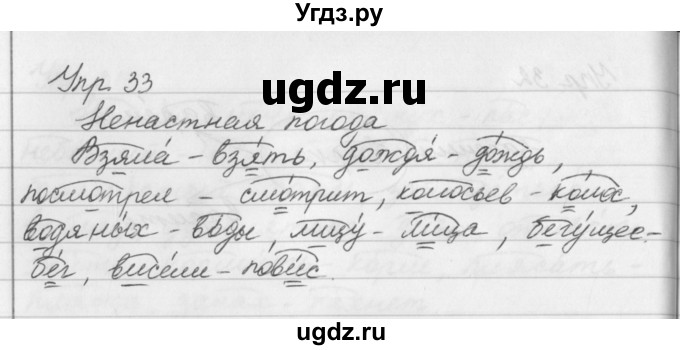 Угдз.ру
Упр. 33
ugdz.ru
Ненастная погода
Взяла́ - взя́ть, дождя́ - до́ждь,
посмотрел - смо́трит, колосьев - ко́лос,
водяны́х - во́ды, лицу́ - ли́ца, бегу́щее -
бе́г, висе́ли - пови́с.
ugdz.ru
ugdz.ru